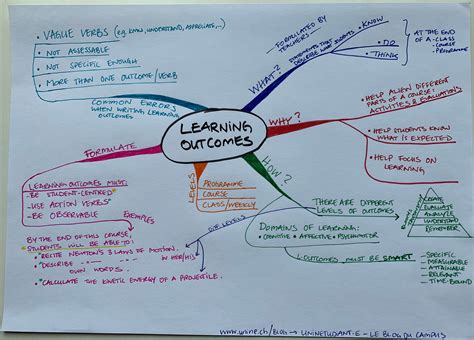 • VAGUE VERBS (e.g. KNOW, UNDERSTAND, APPRECIATE,...)
• NOT ASSESSABLE
• NOT SPECIFIC ENOUGH
• MORE THAN ONE OUTCOME/VERB
COMMON ERRORS
WHEN WRITING LEARNING
OUTCOMES
LEARNING
OUTCOMES
WHAT?
FORMULATED BY
TEACHERS
STATEMENTS THAT
DESCRIBE WHAT STUDENTS
• KNOW
• DO
• THINK
AT THE END
OF A • CLASS
• COURSE
• PROGRAMME
WHY?
• HELP ALIGN DIFFERENT
PARTS OF A COURSE:
ACTIVITIES & EVALUATIONS
• HELP STUDENTS KNOW
WHAT IS EXPECTED
• HELP FOCUS ON
LEARNING
HOW?
THERE ARE DIFFERENT
LEVELS OF OUTCOMES
CREATE
EVALUATE
ANALYZE
UNDERSTAND
REMEMBER
DOMAINS OF LEARNING:
• COGNITIVE • AFFECTIVE • PSYCHOMOTOR
L. OUTCOMES MUST BE SMART
- SPECIFIC
- MEASURABLE
- ATTAINABLE
- RELEVANT
- TIME-BOUND
LEVELS
PROGRAMME
COURSE
CLASS/WEEKLY
FORMULATE
LEARNING OUTCOMES MUST:
- BE STUDENT-CENTRED
- USE ACTION VERBS
- BE OBSERVABLE
EXEMPLES
BY THE END OF THIS COURSE,
STUDENTS WILL BE ABLE TO:
• RECITE NEWTON'S 3 LAWS OF MOTION.
• DESCRIBE IN HER/HIS
OWN WORDS.
• CALCULATE THE KINETIC ENERGY OF A PROJECTILE.
LEVELS
www.unine.ch/blog → UNINETUDIANT·E - LE BLOG DU CAMPUS